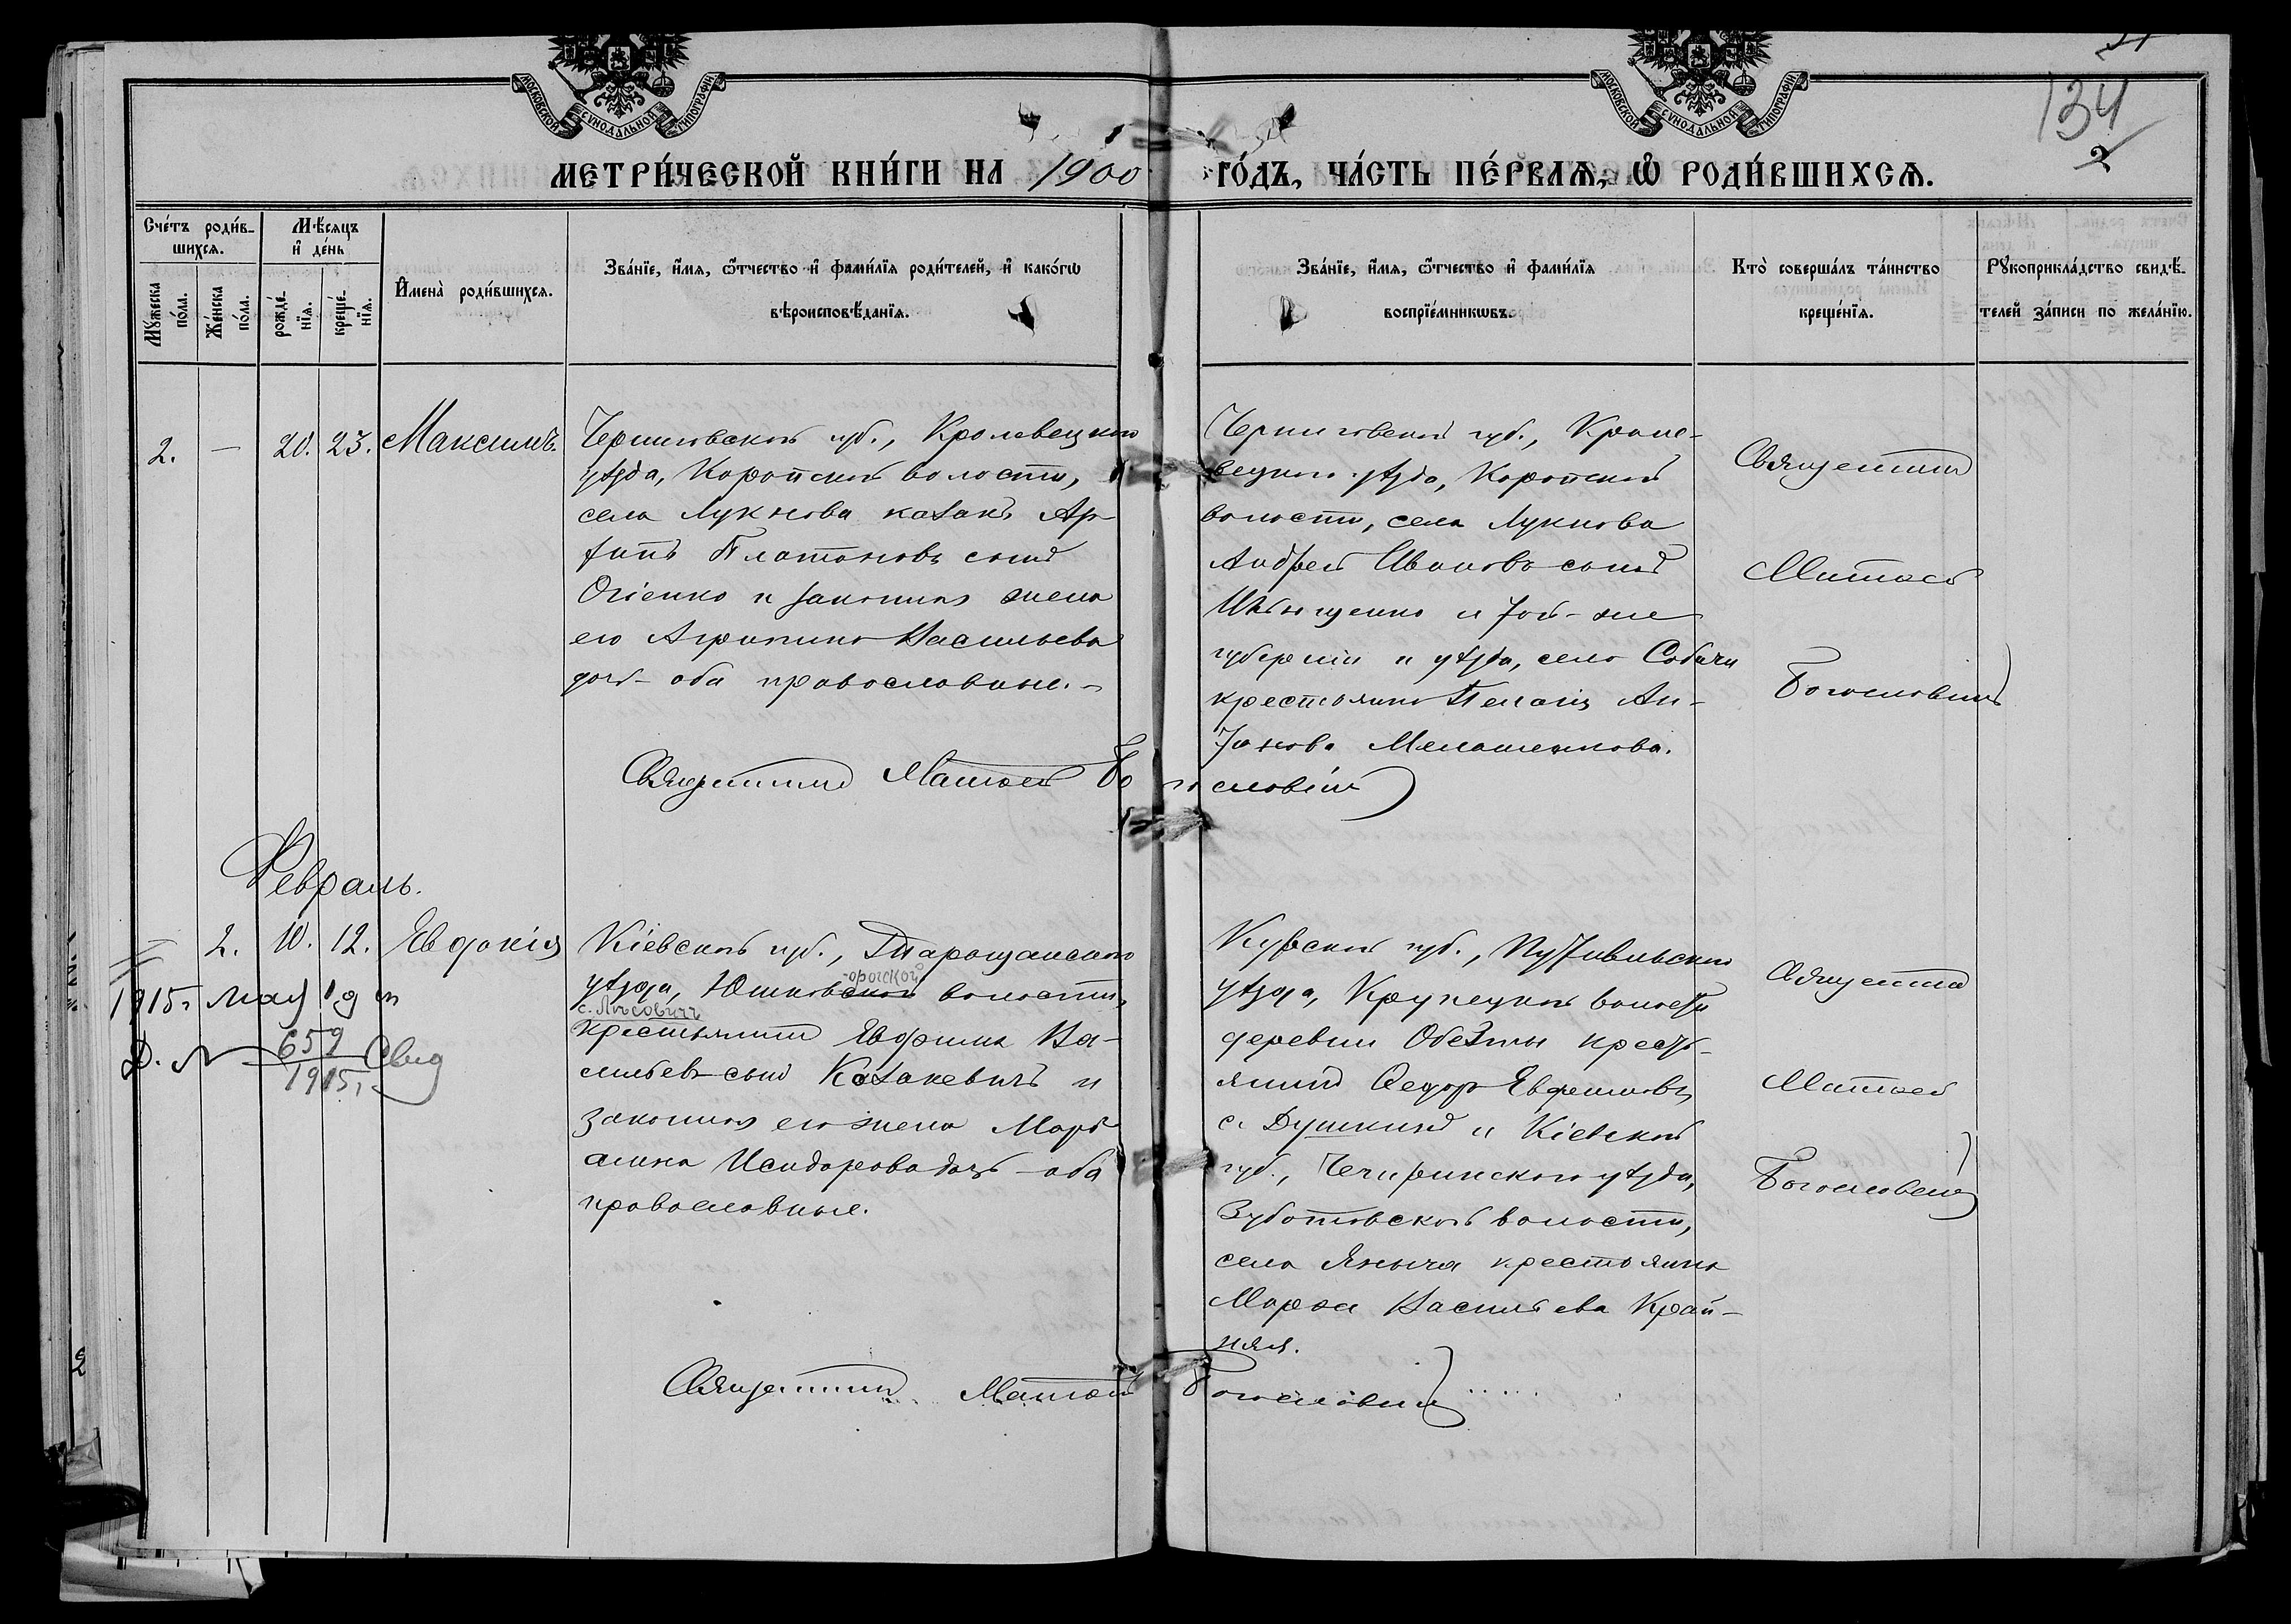 МОСКОВСКОЙ СѴНОДАЛЬНОЙ ТИПОГРАФІИ
МОСКОВСКОЙ СѴНОДАЛЬНОЙ ТИПОГРАФІИ
134
2
МЕТРИ́ЧЕСКОЙ КНИ́ГИ НА 1900 ГО́ДЪ, ЧА́СТЬ ПЕ́РВАѦ, Ѡ҆ РОДИ́ВШИХСѦ.
Сче́тъ роди́в-
шихсѧ.
Мꙋ́жеска по́ла.
Же́нска по́ла.
Мѣ́сѧцъ
и҆ де́нь
рожде́-
нїѧ.
креще́-
нїѧ.
И҆мена̀ роди́вшихсѧ.
Зва́нїе, и҆́мѧ, ѻ҆́тчество и҆ фами́лїѧ роди́телей, и҆ како́гѡ
вѣроисповѣ́данїѧ.
Зва́нїе, и҆́мѧ, ѻ҆́тчество и҆ фами́лїѧ
воспрїе́мникѡвъ.
Кто̀ соверша́лъ та́инство
креще́нїѧ.
Рꙋкоприкла́дство свидѣ́-
телей за́писи по жела́нїю.
2. — 20. 23. Максимъ.
Черниговской губ., Кролевецкаго
уѣзда, Коропской волости,
села Лукнова козакъ Ар-
хипъ Платоновъ сынъ
Огіенко и законная жена
его Агрипина Васильева
дочь оба православные.
Черниговской губ., Кроле-
вецкаго уѣзда, Коропской
волости, села Лукнова
Андрей Ивановъ сынъ
и той-же
губерніи и уѣзда, села Собичи
крестьянка Пелагія Ан-
тонова Мелашенкова.
Священникъ
Матѳей
Богословскій
Священникъ Матѳей Богословскій
Февраль.
— 2. 10. 12. Евдокія
1915 г. мая 19 дн
Д. № 659
1915 г. Свид
Кіевской губ., Таращанскаго
уѣзда, Юшковской волости,
с. Лѣсовичъ
крестьянинъ Евфимъ Ва-
сильевъ сынъ Козакевичъ и
законная его жена Марі-
анна Исидорова дочь оба
православные.
Курской губ., Путивльскаго
уѣзда, Крупецкой волости
деревни Обезты кресть-
янинъ Ѳедоръ Евфимовъ
с. Душкинъ и Кіевской
губ., Чигиринскаго уѣзда,
волости,
села Яныча крестьянка
Марѳа Васильева Край-
няя.
Священникъ
Матѳей
Богословскій
Священникъ Матѳей Богословскій
2